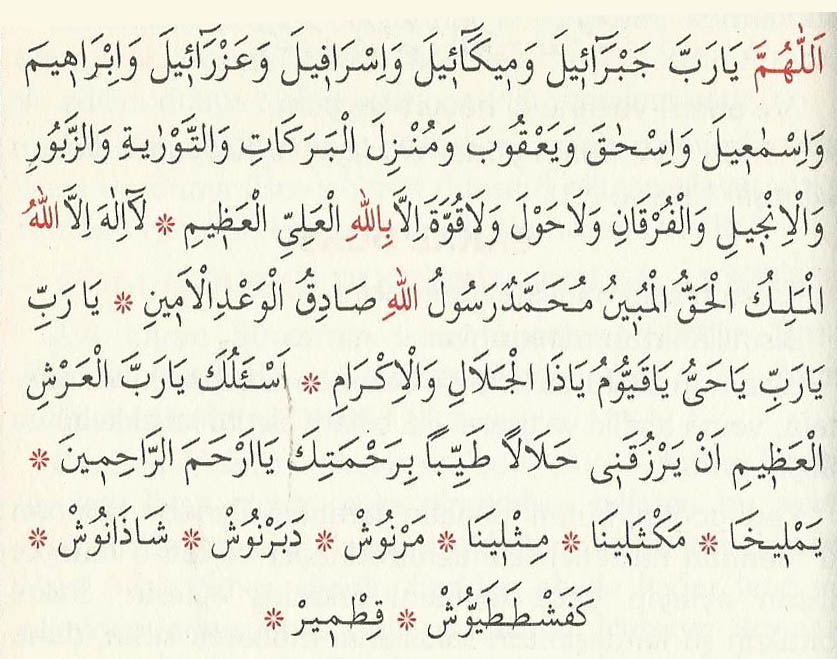 اَللّٰهُمَّ يَارَبَّ جَبْرَآئِيلَ وَمِيكَآئِيلَ وَاِسْرَافِيلَ وَعَزْرَآئِيلَ وَاِبْرَاهِيمَ
وَاِسْمٰعِيلَ وَاِسْحٰقَ وَيَعْقُوبَ وَمُنْزِلَ الْبَرَكَاتِ وَالتَّوْرٰيةِ وَالزَّبُورِ
وَالْاِنْجِيلِ وَالْفُرْقَانِ وَلَاحَوْلَ وَلَاقُوَّةَ اِلَّابِاللهِ الْعَلِىِّ الْعَظِيمِ * لَآاِلٰهَ اِلَّا اللهُ
الْمَلِكُ الْحَقُّ الْمُبِينُ مُحَمَّدٌرَسُولُ اللهِ صَادِقُ الْوَعْدِالْاَمِينِ * يَا رَبِّ
يَارَبِّ يَاحَىُّ يَاقَيُّومُ يَاذَا الْجَلَالِ وَالْاِكْرَامِ * اَسْئَلُكَ يَارَبَّ الْعَرْشِ
الْعَظِيمِ اَنْ يَرْزُقَنِى حَلَالاً طَيِّباً بِرَحْمَتِكَ يَااَرْحَمَ الرَّاحِمِينَ *
يَمْلِيخَا * مَكْثَلِينَا * مِثْلِينَا * مَرْنُوشْ * دَبَرْنُوشْ * شَاذَنُوشْ *
كَفَشْطَطَيُّوشْ * قِطْمِيرْ *